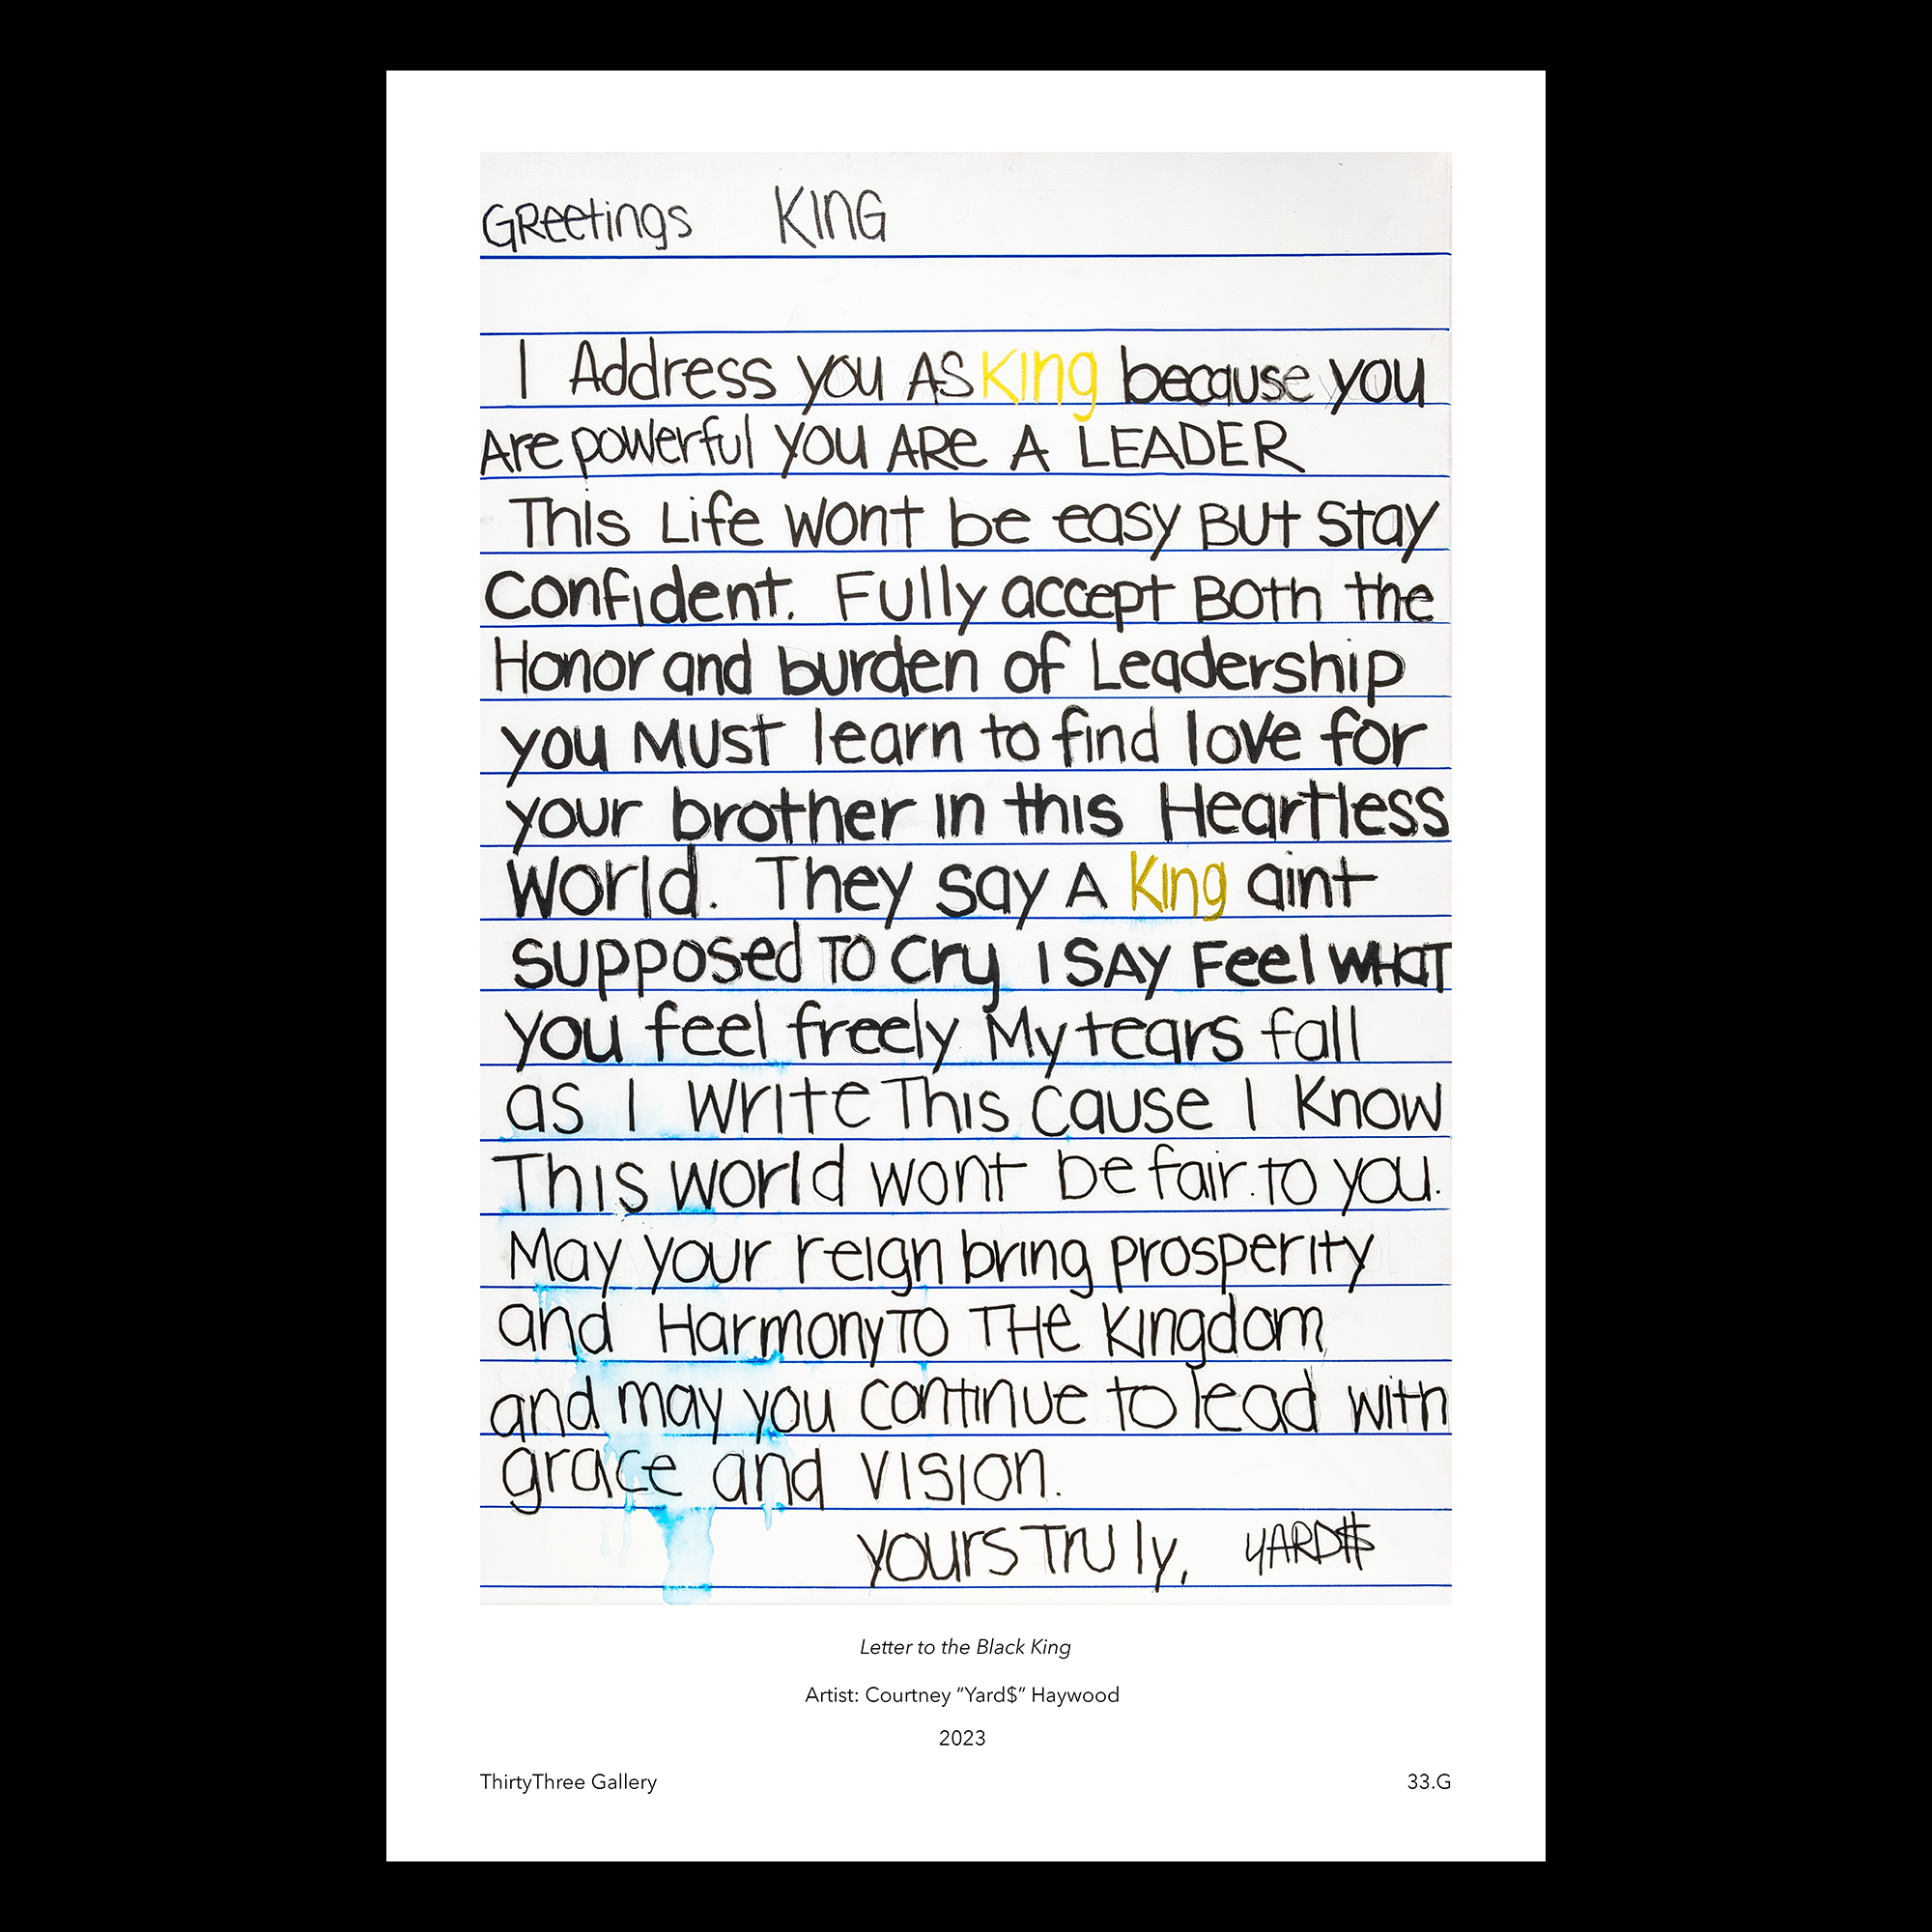 GReetings KING
I Address you AS King because you
Are powerful you ARe A LEADER
This Life wont be easy BUt Stay
Confident. Fully accept BOth the
Honor and burden of Leadership
you MUst learn to find love for
your brother in this Heartless
World. They say A King aint
supposed TO cry I SAY Feel WHaT
you feel freely My tears fall
as I Write This Cause I Know
This world wont be fair. to you.
May your reign bring prosperity
and Harmony TO THe kingdom
and may you continue to lead with
grace and vision.
yours Truly, YARD$
Letter to the Black King
Artist: Courtney “Yard$” Haywood
2023
ThirtyThree Gallery 33.G